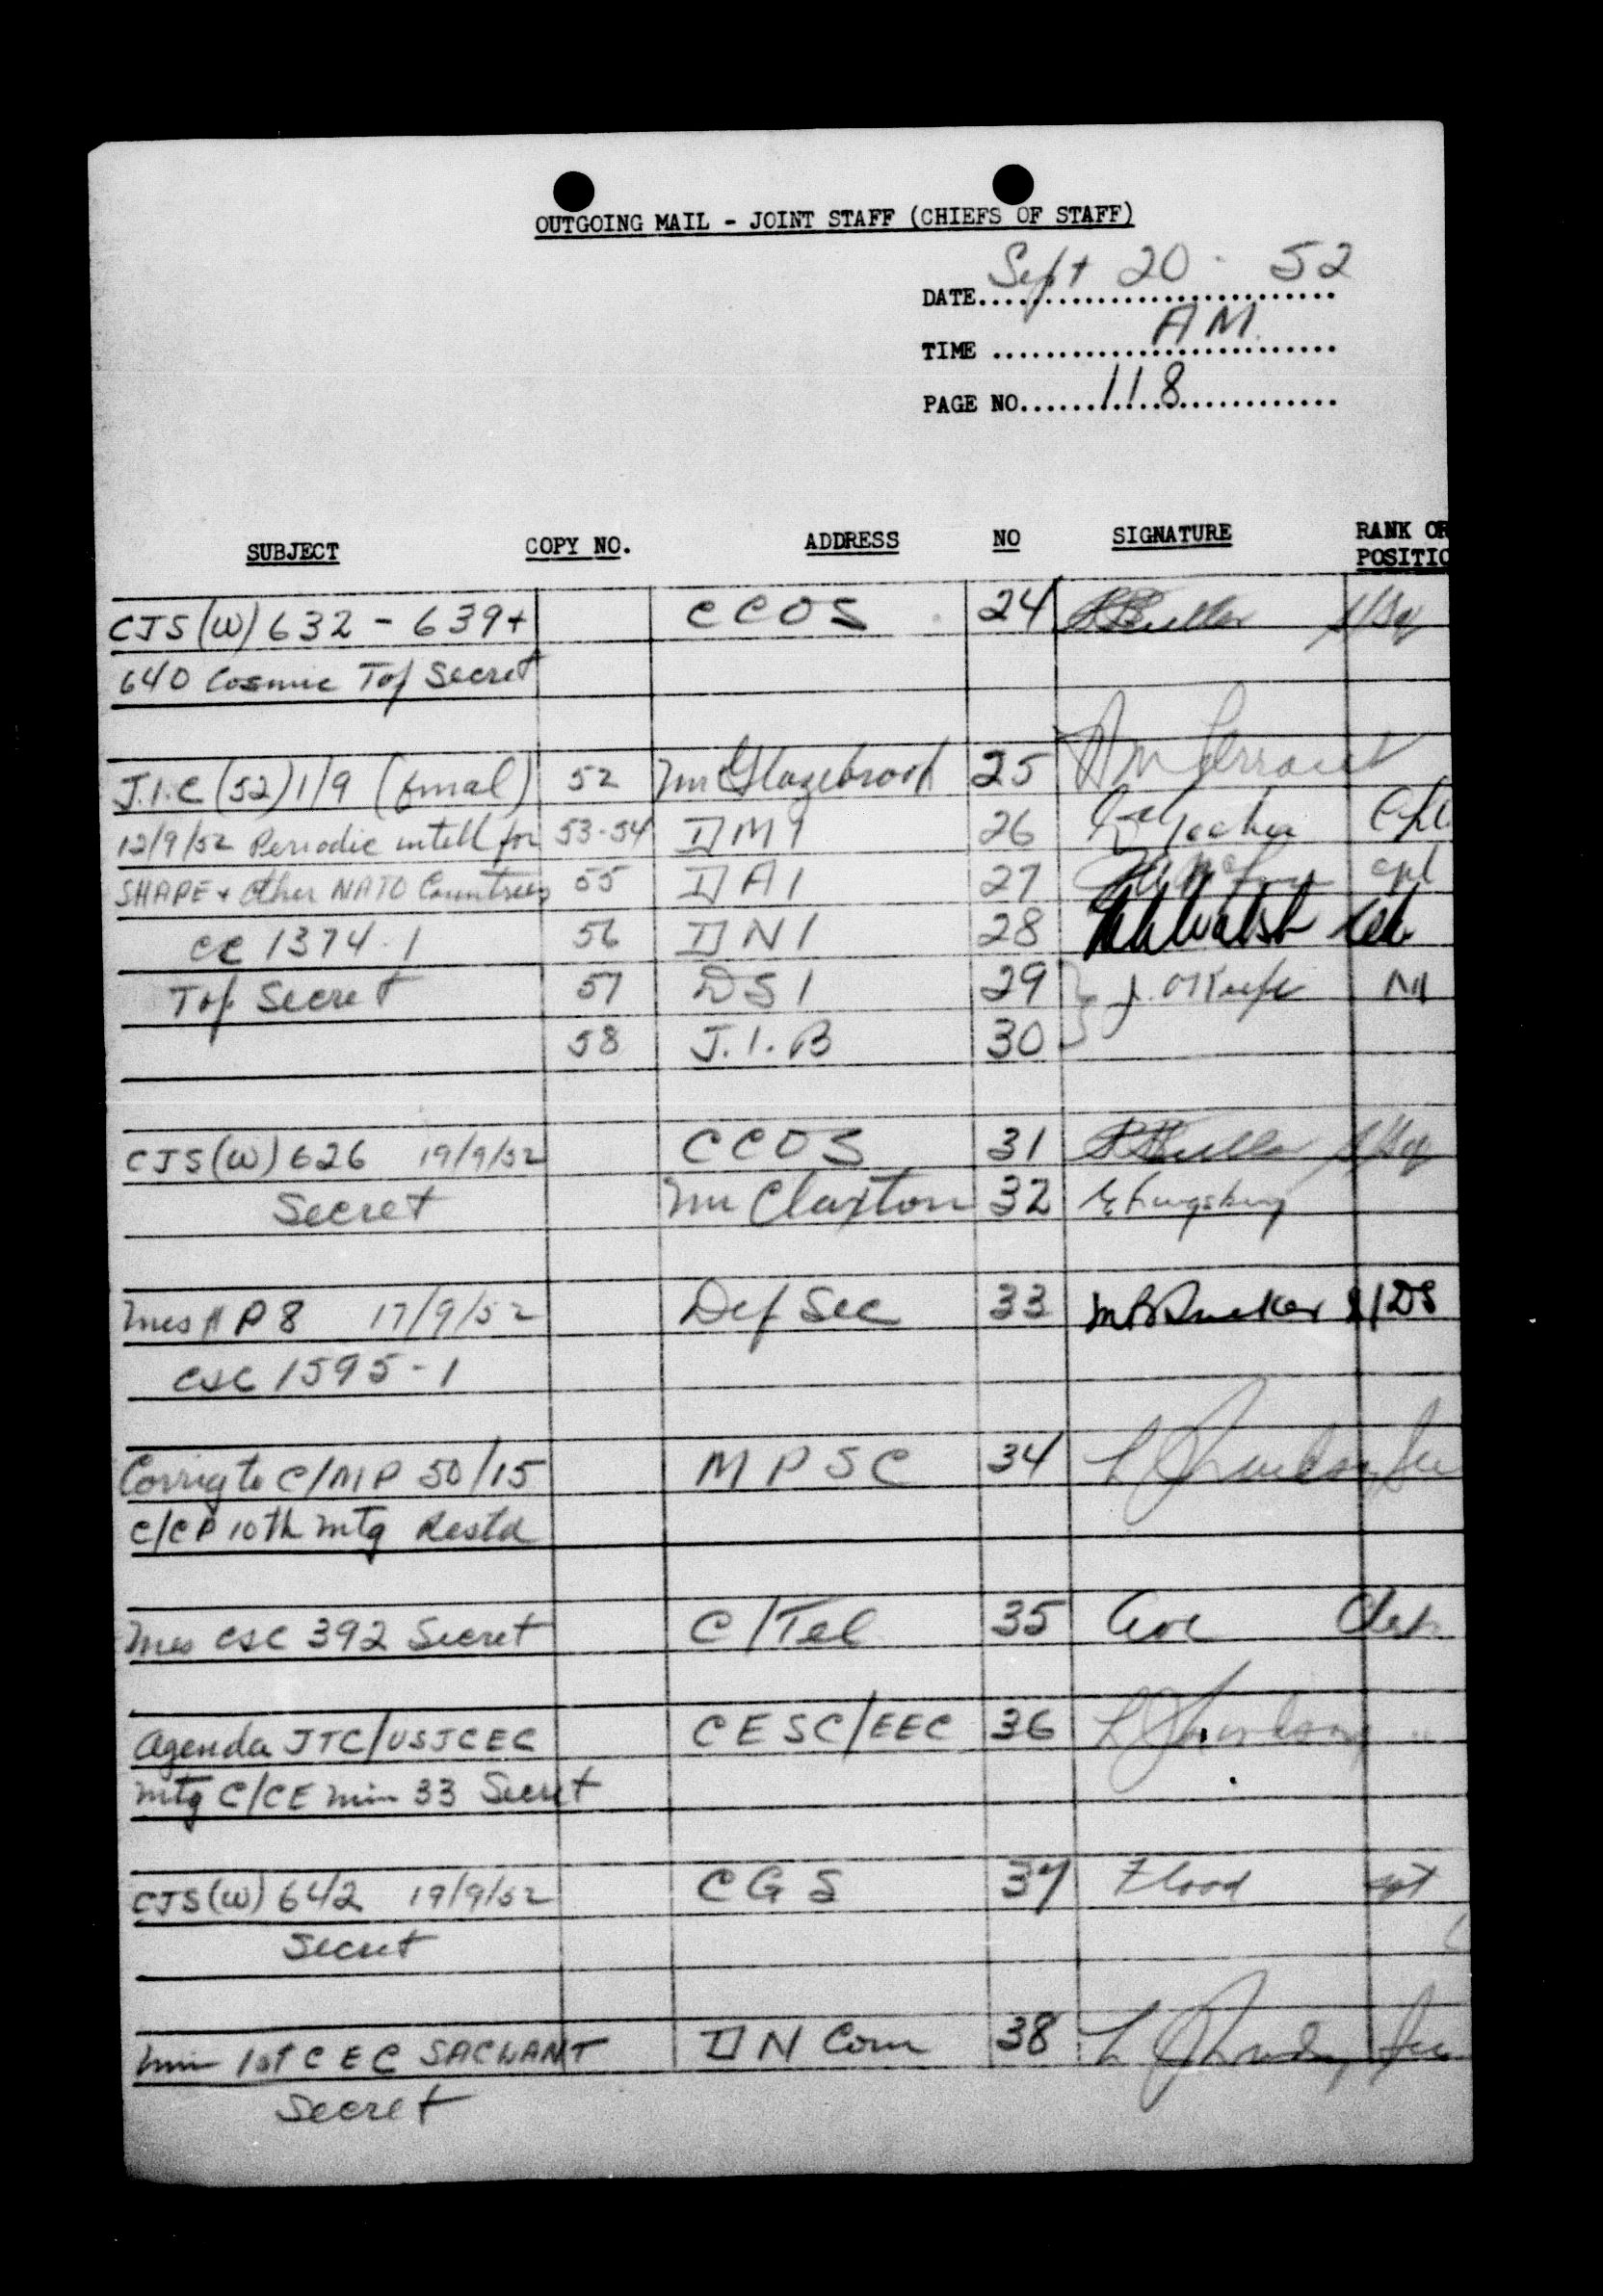 OUTGOING MAIL - JOINT STAFF (CHIEFS OF STAFF)
DATE Sept 20 - 52
TIME AM
PAGE NO. 118
SUBJECT COPY NO. ADDRESS NO SIGNATURE RANK OR POSITIO
CJS (W) 632 - 639 + CCOS 24
640 Cosmic Top Secret
J.I.C (52) 1/9 (final) 52 Mr Glazebrook 25
12/9/52 Periodic intell for 53-54 DMI 26 Cpl
SHAPE + Other NATO Countries 55 DAI 27 cpl
CC 1374-1 56 DNI 28 Walsh
Top Secret 57 DSI 29 J. O'Keefe
58 J.I.B 30
CJS (W) 626 19/9/52 CCOS 31
Secret Mr Claxton 32
Mes # P8 17/9/52 Def Sec 33 S/DS
CSC 1595-1
Corrig to C/MP 50/15 MPSC 34
C/CP 10th Mtg Restd
Mes CSC 392 Secret C/Tel 35 Clerk
Agenda JTC/USJCEC CESC/EEC 36 "
Mtg C/CE Min 33 Secret
CJS (W) 642 19/9/52 CGS 37 Flood sgt
Secret
Min 1st CEC SACLANT DN Com 38
Secret